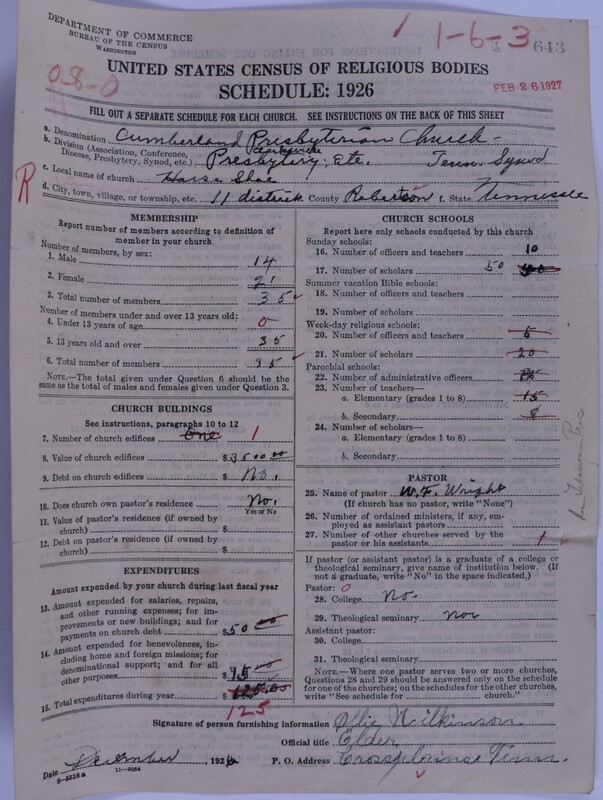 DEPARTMENT OF COMMERCE
BUREAU OF THE CENSUS
WASHINGTON
1-6-3
643
08-0
UNITED STATES CENSUS OF RELIGIOUS BODIES
SCHEDULE: 1926
FEB 26 1927
FILL OUT A SEPARATE SCHEDULE FOR EACH CHURCH. SEE INSTRUCTIONS ON THE BACK OF THIS SHEET
a. Denomination Cumberland Presbyterian Church
b. Division (Association, Conference, Diocese, Presbytery, Synod, etc.) Clarksville Presbytery, Etc. Tenn. Synod
R
c. Local name of church Horse Shoe
d. City, town, village, or township, etc. 11 district County Robertson f. State Tennessee
MEMBERSHIP
Report number of members according to definition of
member in your church
Number of members, by sex:
1. Male 14
2. Female 21
3. Total number of members 35
Number of members under and over 13 years old:
4. Under 13 years of age 0
5. 13 years old and over 35
6. Total number of members 35
NOTE.—The total given under Question 6 should be the
same as the total of males and females given under Question 3.
CHURCH BUILDINGS
See instructions, paragraphs 10 to 12
7. Number of church edifices One 1
8. Value of church edifices $3500.00
9. Debt on church edifices $ No.
10. Does church own pastor's residence No.
Yes or No
11. Value of pastor's residence (if owned by
church) $
12. Debt on pastor's residence (if owned by
church) $
EXPENDITURES
Amount expended by your church during last fiscal year
13. Amount expended for salaries, repairs,
and other running expenses; for im-
provements or new buildings; and for
payments on church debt $50 00
14. Amount expended for benevolences, in-
cluding home and foreign missions; for
denominational support; and for all
other purposes $75 00
15. Total expenditures during year $125.00
125
CHURCH SCHOOLS
Report here only schools conducted by this church
Sunday schools:
16. Number of officers and teachers 10
17. Number of scholars 50
Summer vacation Bible schools:
18. Number of officers and teachers
19. Number of scholars
Week-day religious schools:
20. Number of officers and teachers 5
21. Number of scholars 20
Parochial schools:
22. Number of administrative officers
23. Number of teachers—
a. Elementary (grades 1 to 8) 15
b. Secondary 8
24. Number of scholars—
a. Elementary (grades 1 to 8)
b. Secondary
PASTOR
25. Name of pastor W.F. Wright
(If church has no pastor, write "None")
26. Number of ordained ministers, if any, em-
ployed as assistant pastors
27. Number of other churches served by the
pastor or his assistants 1
If pastor (or assistant pastor) is a graduate of a college or
theological seminary, give name of institution below. (If
not a graduate, write "No" in the space indicated.)
Pastor: 0
28. College No
29. Theological seminary No
Assistant pastor:
30. College
31. Theological seminary
NOTE.—Where one pastor serves two or more churches,
Questions 28 and 29 should be answered only on the schedule
for one of the churches; on the schedules for the other churches,
write "See schedule for church."
Signature of person furnishing information Ollie Wilkinson
Official title Elder
Date December, 1926 P. O. Address Crossplains Tenn.
8-5318a 11-9054